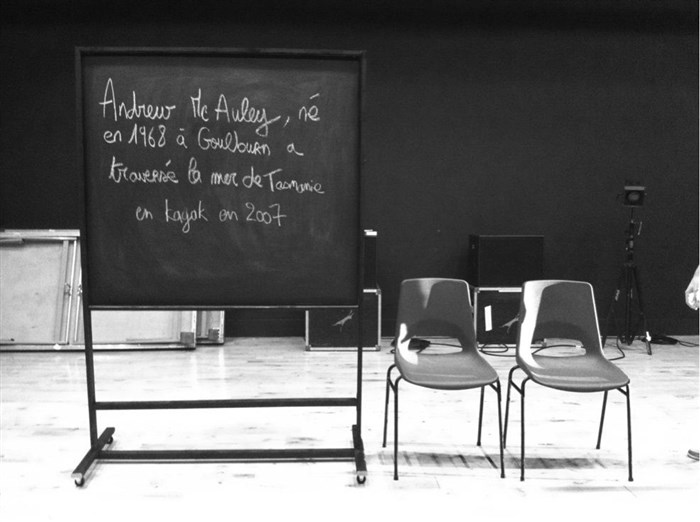 Andrew Mc Auley, né
en 1968 à Goulburn a
traversé la mer de Tasmanie
en kayak en 2007